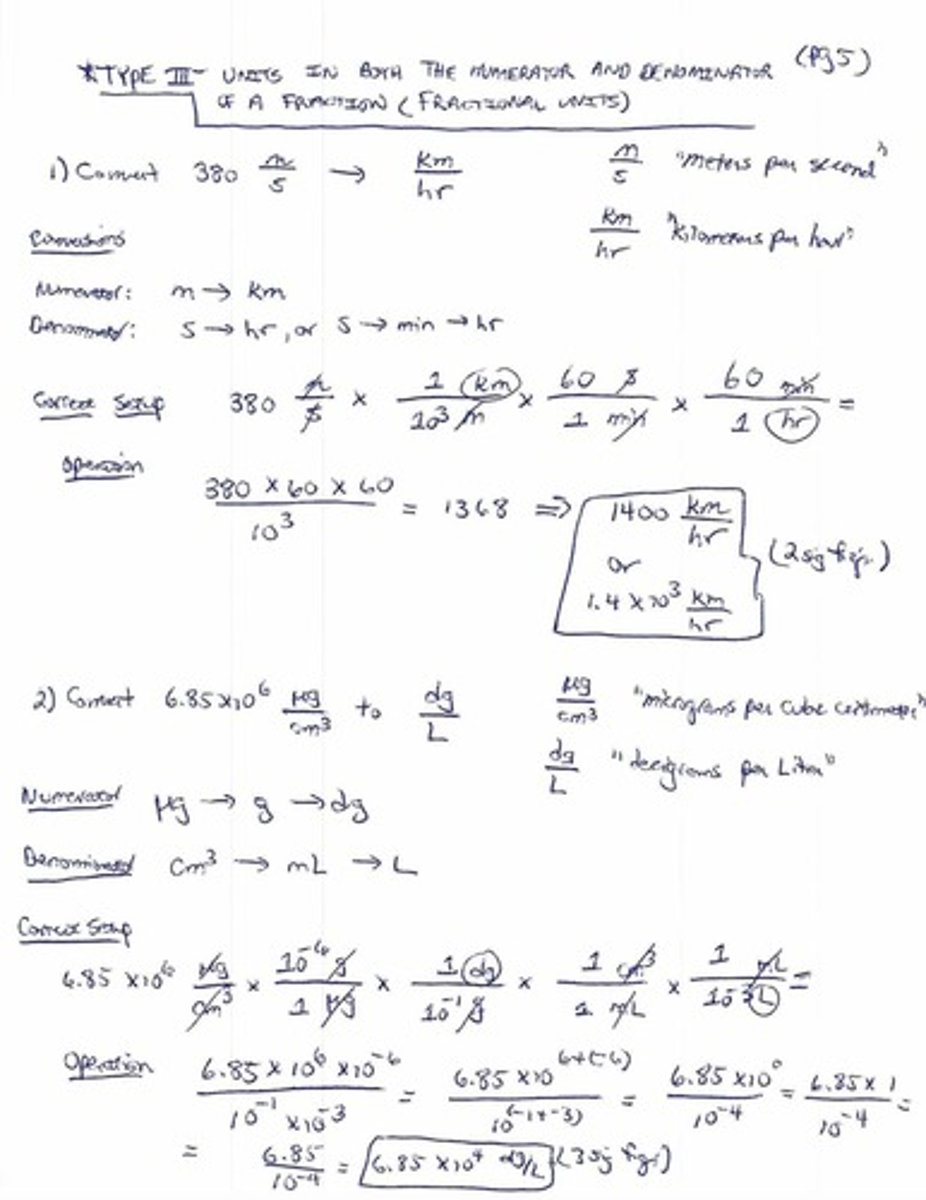 (Pg 5)
*TYPE III - UNITS IN BOTH THE NUMERATOR AND DENOMINATOR
OF A FRACTION (FRACTIONAL UNITS)
1) Convert 380 m/s → km/hr
m/s "meters per second"
km/hr "kilometers per hour"
Conversions
Numerator: m → km
Denominator: s → hr, or s → min → hr
Correct Setup 380 m/s × 1 km/10³ m × 60 s/1 min × 60 min/1 hr =
Operation
380 × 60 × 60/10³ = 1368 ⇒ 1400 km/hr
or
1.4 × 10³ km/hr
(2 sig figs.)
2) Convert 6.85 × 10⁶ μg/cm³ to dg/L
μg/cm³ "micrograms per cubic centimeter"
dg/L "decigrams per Liter"
Numerator μg → g → dg
Denominator cm³ → mL → L
Correct Setup
6.85 × 10⁶ μg/cm³ × 10⁻⁶ g/1 μg × 1 dg/10⁻¹ g × 1 cm³/1 mL × 1 mL/10⁻³ L =
Operation 6.85 × 10⁶ × 10⁻⁶/10⁻¹ × 10⁻³ = 6.85 × 10⁶⁺⁽⁻⁶⁾/10⁽⁻¹⁺⁻³⁾ = 6.85 × 10⁰/10⁻⁴ = 6.85 × 1/10⁻⁴ =
= 6.85/10⁻⁴ = 6.85 × 10⁴ dg/L (3 sig figs)